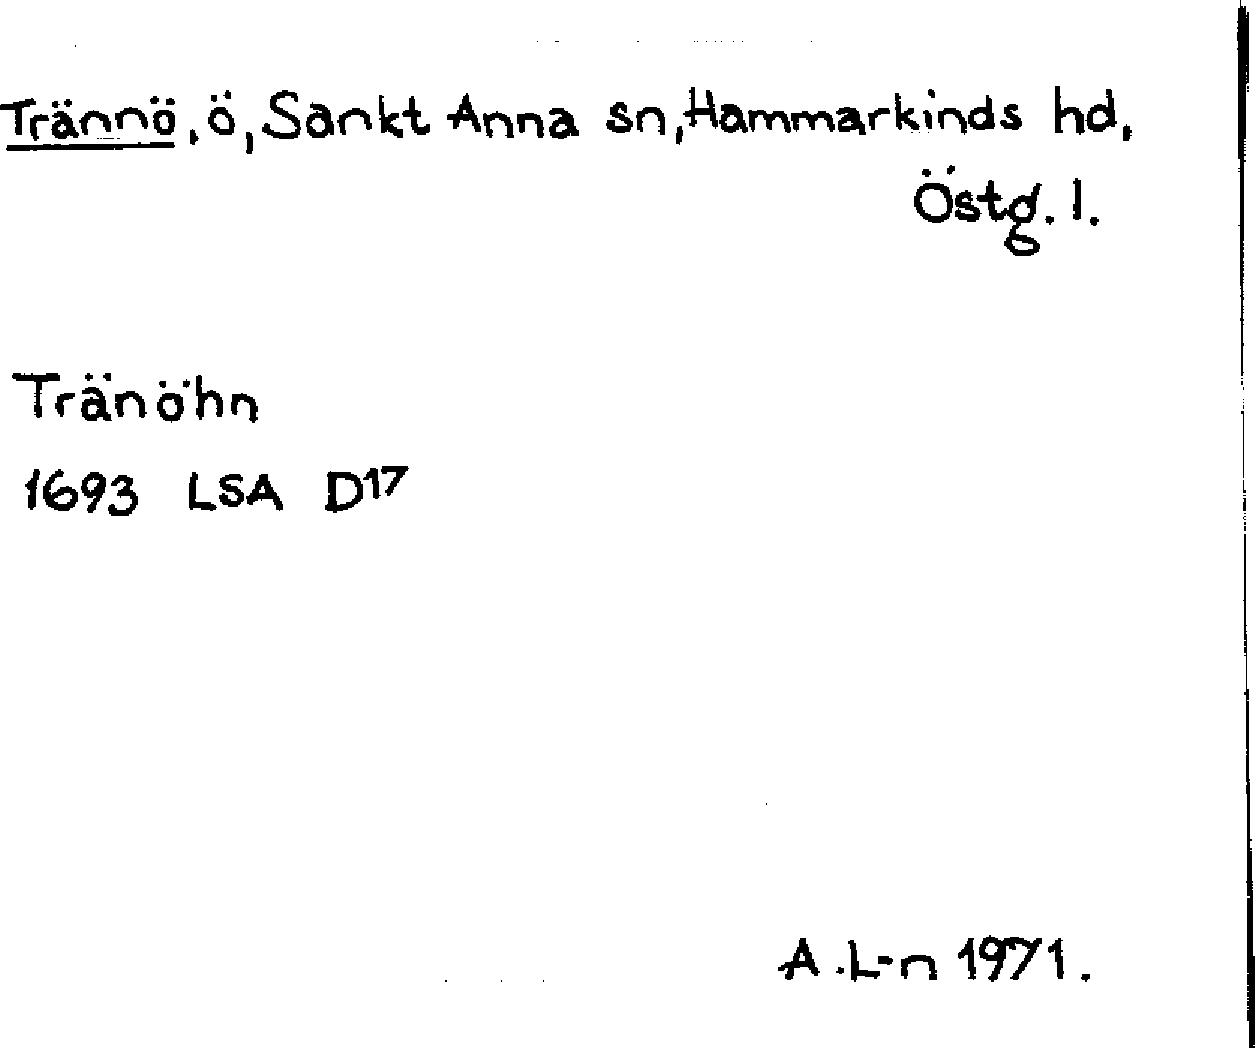 Trännö, ö, Sankt Anna sn, Hammarkinds hd,
Östg. l.
Tränöhn
1693 LSA D17
A.L-n 1971.